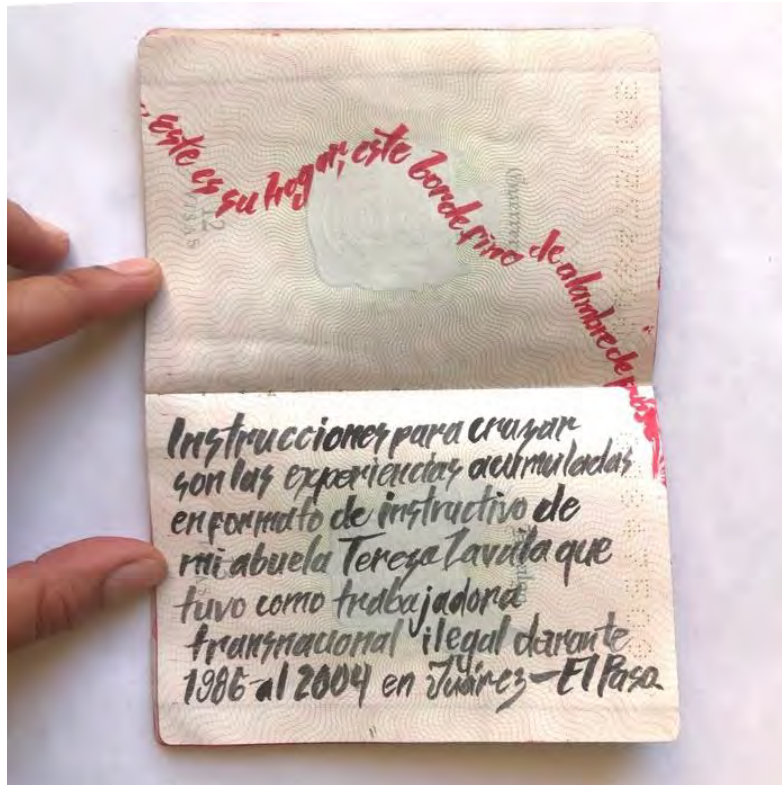 , este es su hogar, este borde fino de alambre de púas
12
VISAS
Instrucciones para cruzar
son las experiencias acumuladas
en formato de instructivo de
mi abuela Teresa Zavala que
tuvo como trabajadora
transnacional ilegal durante
1986 al 2004 en Juárez-El Paso.